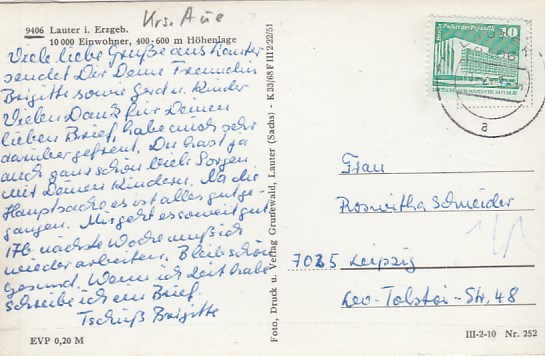 Krs. Aue
9406 Lauter i. Erzgeb.
10 000 Einwohner, 400-600 m Höhenlage
Viele liebe Grüße aus Lauter
sendet Dir Deine Freundin
Brigitte sowie Gerd u. Kinder
Vielen Dank für Deinen
lieben Brief, habe mich sehr
darüber gefreut. Du hast ja
auch ganz schön viele Sorgen
mit Deinen Kindern. Na die
Hauptsache es ist alles gutge-
gangen. Mir geht es soweit gut
nächste Woche muß ich
wieder arbeiten. Bleib schön
gesund. Wenn ich Zeit habe
schreibe ich ein Brief.
Tschüß Brigitte
EVP 0,20 M
Foto, Druck u. Verlag Grunewald, Lauter (Sachs) - K 33/68 F III 2 22/51
Palast der Republik
10
a
Frau
Roswitha Schneider
7025 Leipzig
Leo-Tolstoi-Str. 48
III-2-10 Nr. 252